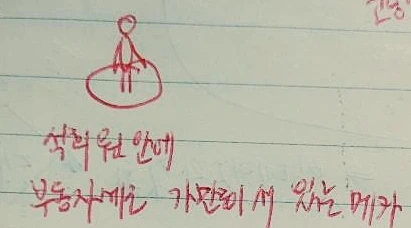 원 안에
부동자세로 가만히 서 있는 메카